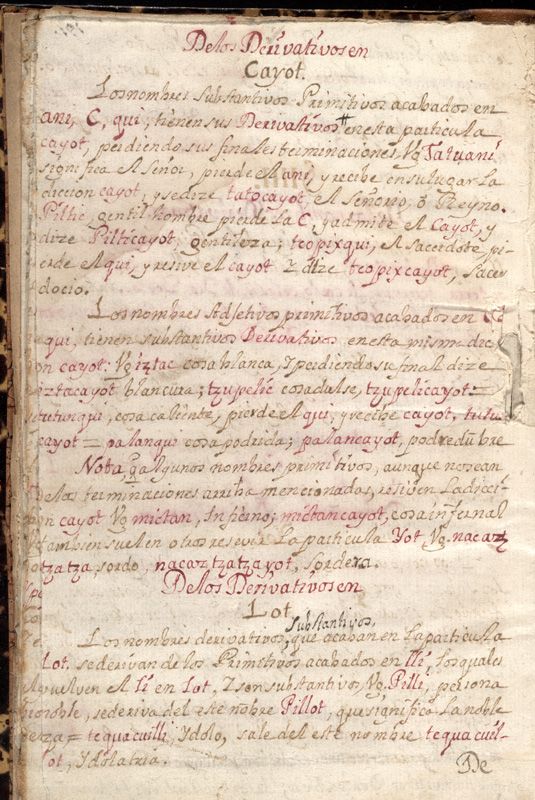 De los Derivativos en
Cayot.
Los nombres Substantivos Primitivos acabados en
ani, C, qui, tienen sus Derivativos en esta particula
cayot, perdiendo sus finales terminaciones, Vg Tatuani
significa el Señor, pierde el ani, y recibe en su lugar la
diccion cayot, y se dize tatocayot, el Señorio, ó Reyno.
Piltic gentil hombre pierde la C, y admite el Cayot, y
dize Pilticayot, gentileza; teopixqui, el sacerdote, pi-
erde el qui, y resive el cayot y dize teopixcayot, Sacer
docio.
Los nombres Adjetivos primitivos acabados en
qui, tienen substantivos Derivativos en esta misma dic
on cayot: Vg iztac cosa blanca, y perdiendo su final dize
iztacayot blancura; tzupelic cosa dulse, tzupelicayot =
tutunqui, cosa caliente, pierde el qui, y recibe cayot, tutu
cayot = palanqui cosa podrida; palancayot, podredubre
Nota, q algunos nombres primitivos, aunque no sean
de las terminaciones arriba mencionadas, resiven la dicci
on cayot Vg mictan, Infierno; mictancayot, cosa infernal
tambien suelen otros resevir la particula Yot Vg. nacaz
tzatza, sordo, nacaztzatzayot, sordera.
De los Derivativos en
Lot
Substantivos,
Los nombres derivativos, que acaban en la particula
Lot, se derivan de los Primitivos acabados en lli, los quales
vuelven el li en lot, y son substantivos, Vg. Pilli, persona
noble, se deriva del este nobre Pillot, que significa la noble
za = tequacuilli, Ydolo, sale del este nombre tequacuil-
ot, Ydolatria.
De